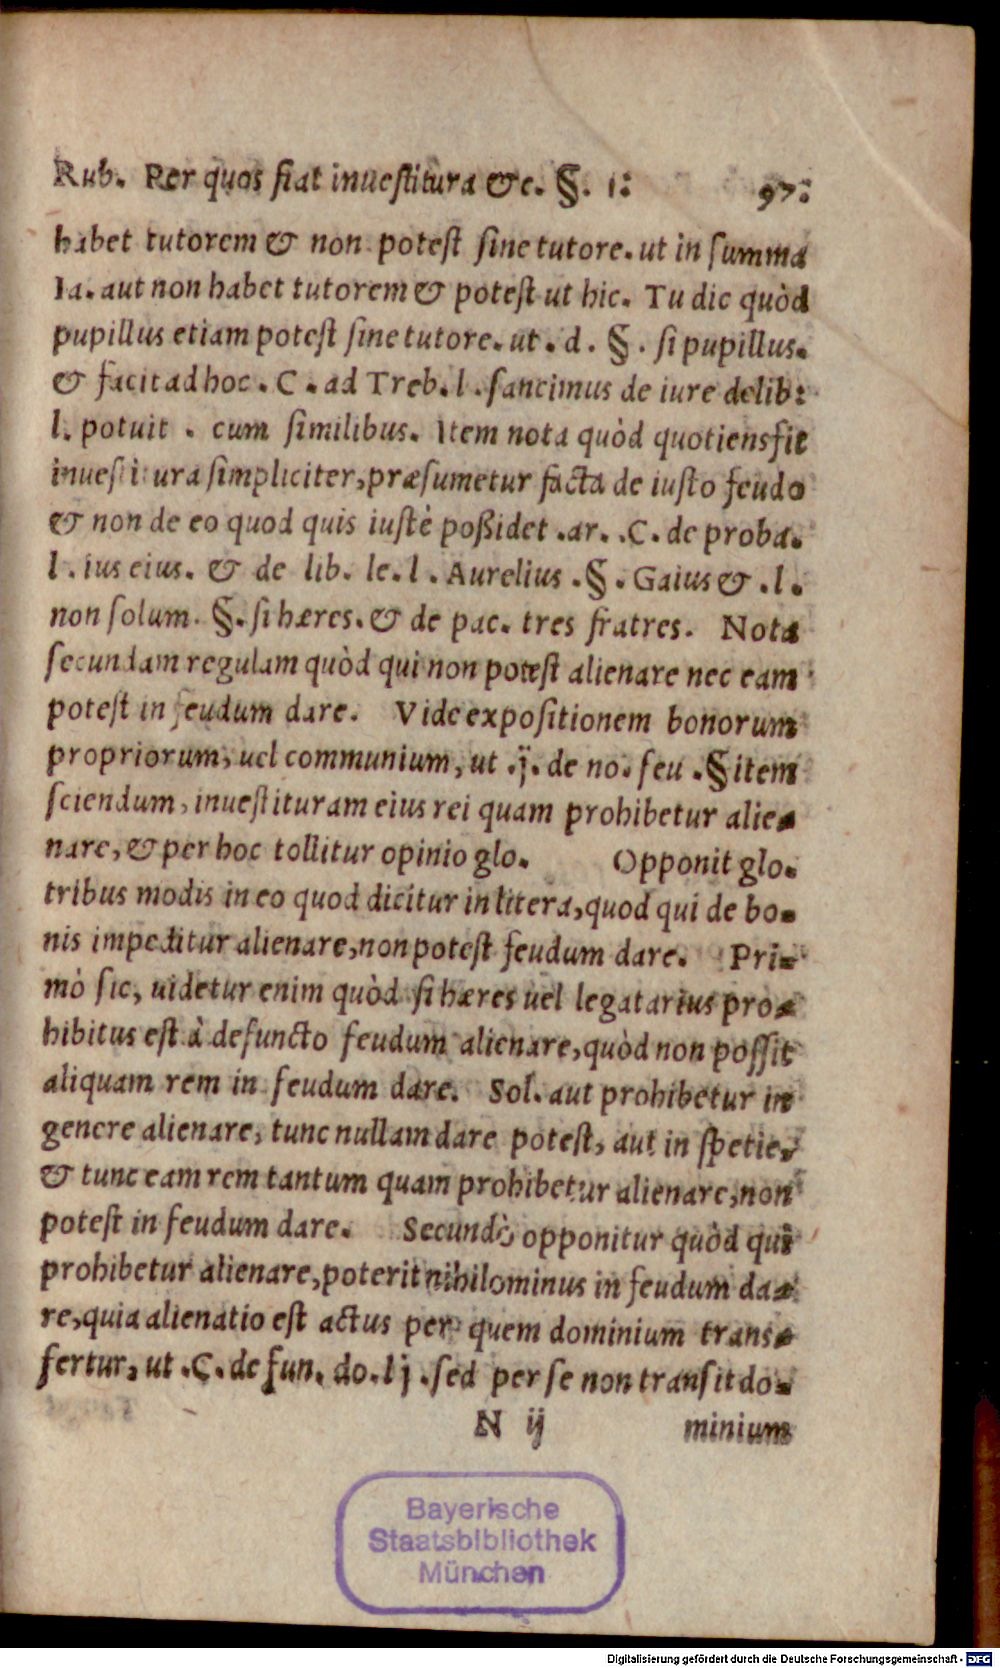 Rub. Per quos fiat inuestitura &c. §. 1: 97:
habet tutorem & non potest sine tutore. ut in summa
Ia. aut non habet tutorem & potest ut hic. Tu dic quòd
pupillus etiam potest sine tutore. ut. d. §. si pupillus.
& facit ad hoc. C. ad Treb. l. sancimus de iure delib:
l. potuit. cum similibus. Item nota quòd quotiens fit
inuestitura simpliciter, præsumetur facta de iusto feudo
& non de eo quod quis iustè poßidet. ar. .C. de proba.
l. ius eius. & de lib. le. l. Aurelius. §. Gaius & .l.
non solum. §. si hæres. & de pac. tres fratres. Nota
secundam regulam quòd qui non potest alienare nec eam
potest in feudum dare. Vide expositionem bonorum
propriorum, uel communium, ut .j. de no. feu. § item
sciendum, inuestituram eius rei quam prohibetur alie-
nare, & per hoc tollitur opinio glo. Opponit glo.
tribus modis in eo quod dicitur in litera, quod qui de bo-
nis impeditur alienare, non potest feudum dare. Pri-
mò sic, uidetur enim quòd si hæres uel legatarius pro-
hibitus est à defuncto feudum alienare, quòd non possit
aliquam rem in feudum dare. Sol. aut prohibetur in
genere alienare, tunc nullam dare potest, aut in spetie,
& tunc eam rem tantum quam prohibetur alienare, non
potest in feudum dare. Secundò opponitur quòd qui
prohibetur alienare, poterit nihilominus in feudum da-
re, quia alienatio est actus per quem dominium trans-
fertur, ut .C. de fun. do. l j. sed per se non transit do-
N ij minium
Bayerische
Staatsbibliothek
München
Digitalisierung gefördert durch die Deutsche Forschungsgemeinschaft - DFG